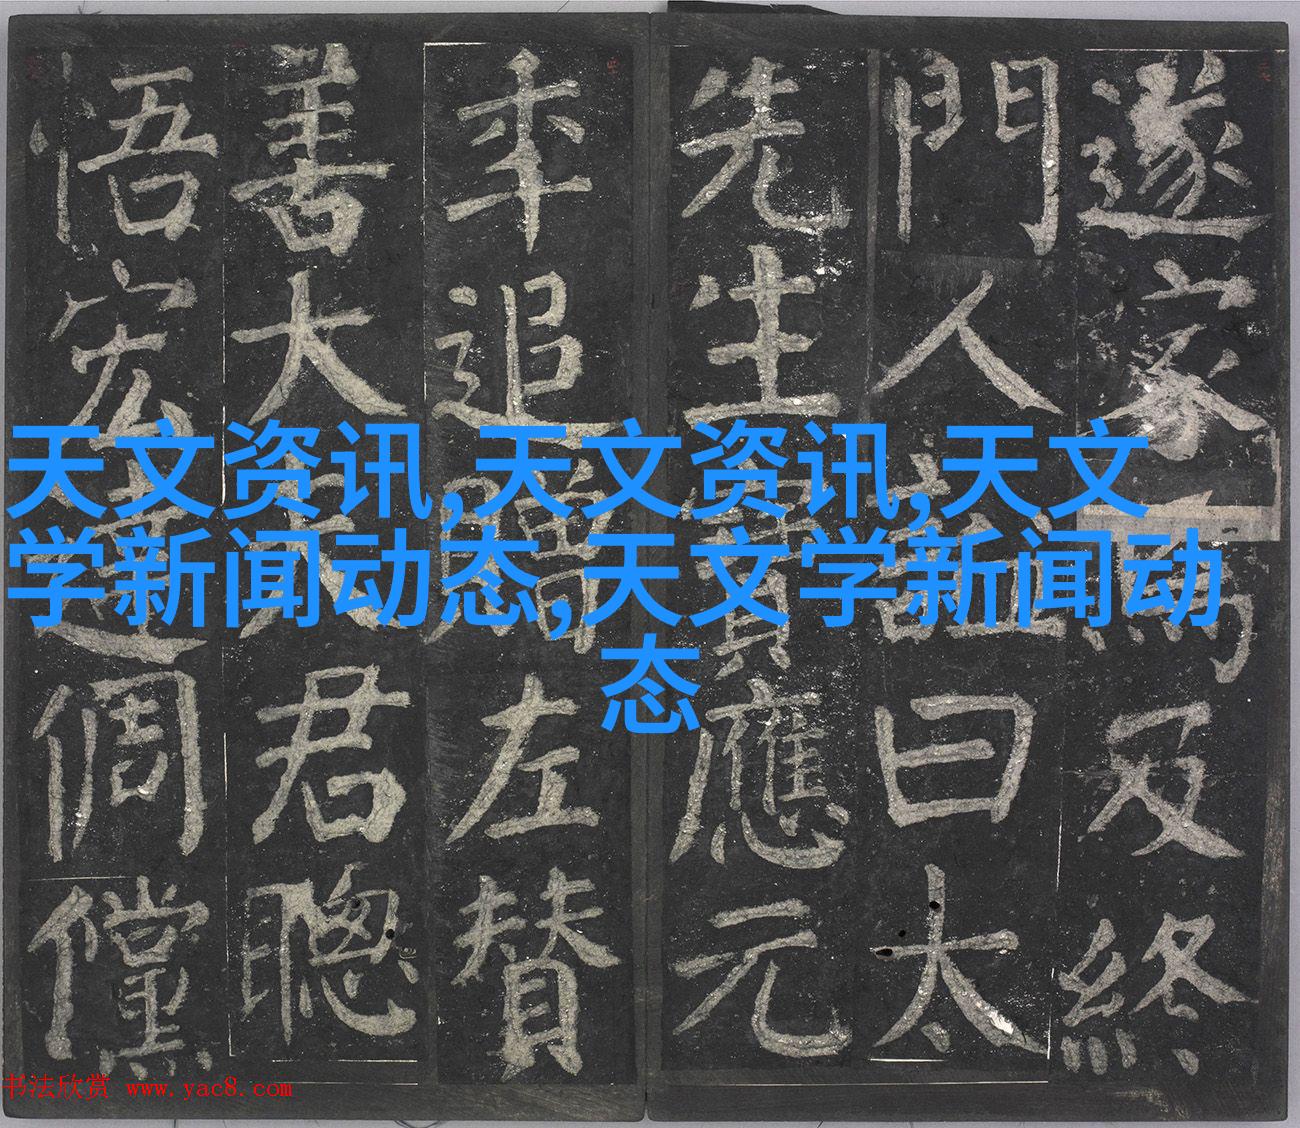 遂家焉及終
門人謚曰太
先生寶應元
年追贈左贊
善大夫君聰
悟宏達倜儻
天文资讯,天文资讯,天文
学新闻动态,天文学新闻动
态
书法欣赏 www.yac8.com